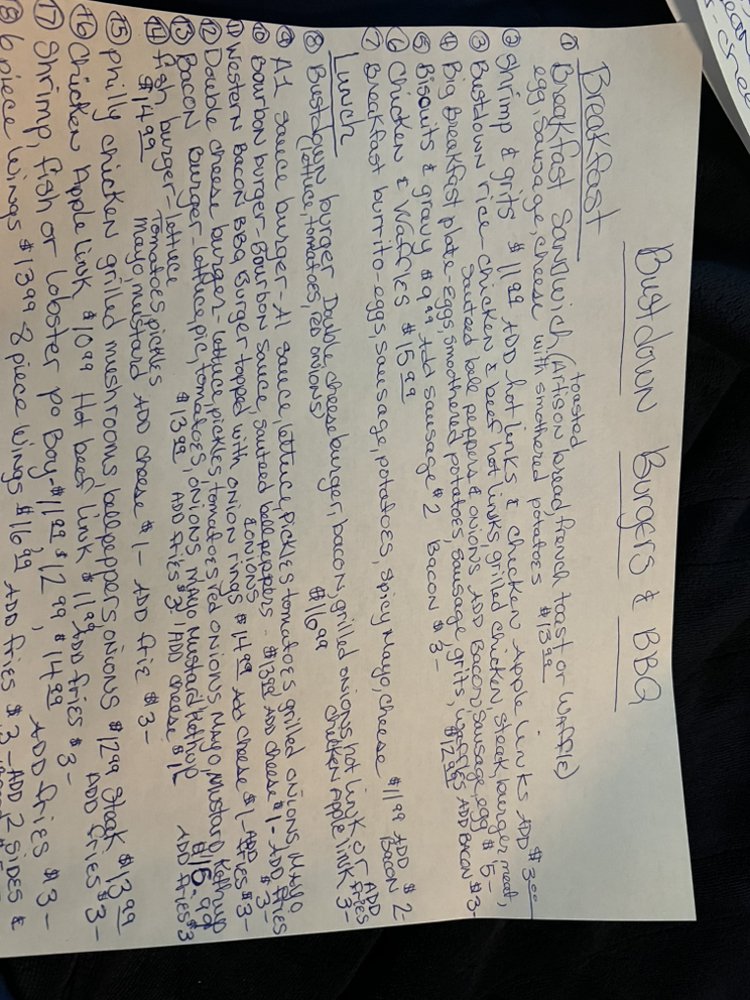 Bustdown Burgers & BBQ
Breakfast
toasted
① Breakfast Sandwich (Artison bread french toast or Waffle)
egg Sausage, cheese with smothered potatoes $13.99
② Shrimp & grits $11.99 ADD hot links & chicken Apple links ADD $3.00
③ Bustdown rice - chicken & beef hot links, grilled chicken, steak, burger meat,
Sauteed bell peppers & onions ADD Bacon, Sausage, egg $5-
④ Big Breakfast plate - eggs, smothered potatoes, sausage, grits, waffles ADD Bacon $3-
$12.99
⑤ Biscuits & gravy $9.99 Add Sausage $2 Bacon $3-
⑥ Chicken & Waffles $15.99
⑦ Breakfast burrito - eggs, sausage, potatoes, spicy Mayo, cheese $11.99 ADD $2-
Bacon
Lunch
⑧ Bustdown burger Double cheeseburger, bacon, grilled onions, hot link or ADD fries
(lettuce, tomatoes, red onions) $16.99 chicken Apple link 3-
⑨ A1 sauce burger - A1 sauce, lettuce, pickles tomatoes grilled onions, Mayo
⑩ Bourbon burger - Bourbon sauce, sauteed bell peppers - $13.99 ADD cheese $1- ADD fries $3-
& onions
⑪ Western Bacon BBQ Burger topped with onion rings $14.99 Add cheese $1- ADD fries $3-
⑫ Double cheese burger - lettuce pickles, tomatoes red onions Mayo, Mustard, Kethup
$15.99 ADD fries $3
⑬ Bacon Burger - lettuce, pic, tomatoes, onions, Mayo Mustard Kethup
$13.99 ADD fries $3- ADD cheese $1-
⑭ fish burger - lettuce
$14.99 Tomatoes, pickles
mayo, mustard ADD cheese $1- ADD frie $3-
⑮ philly chicken grilled mushrooms, bell peppers onions $12.99 Steak $13.99
ADD fries $3-
⑯ Chicken Apple link $10.99 Hot beef link $11.99 ADD fries $3-
⑰ Shrimp, fish or lobster po Boy - $11.99 $12.99, $14.99 ADD fries $3-
⑱ 6 piece wings $13.99 8 piece wings $16.99 ADD fries $3- ADD 2 sides &